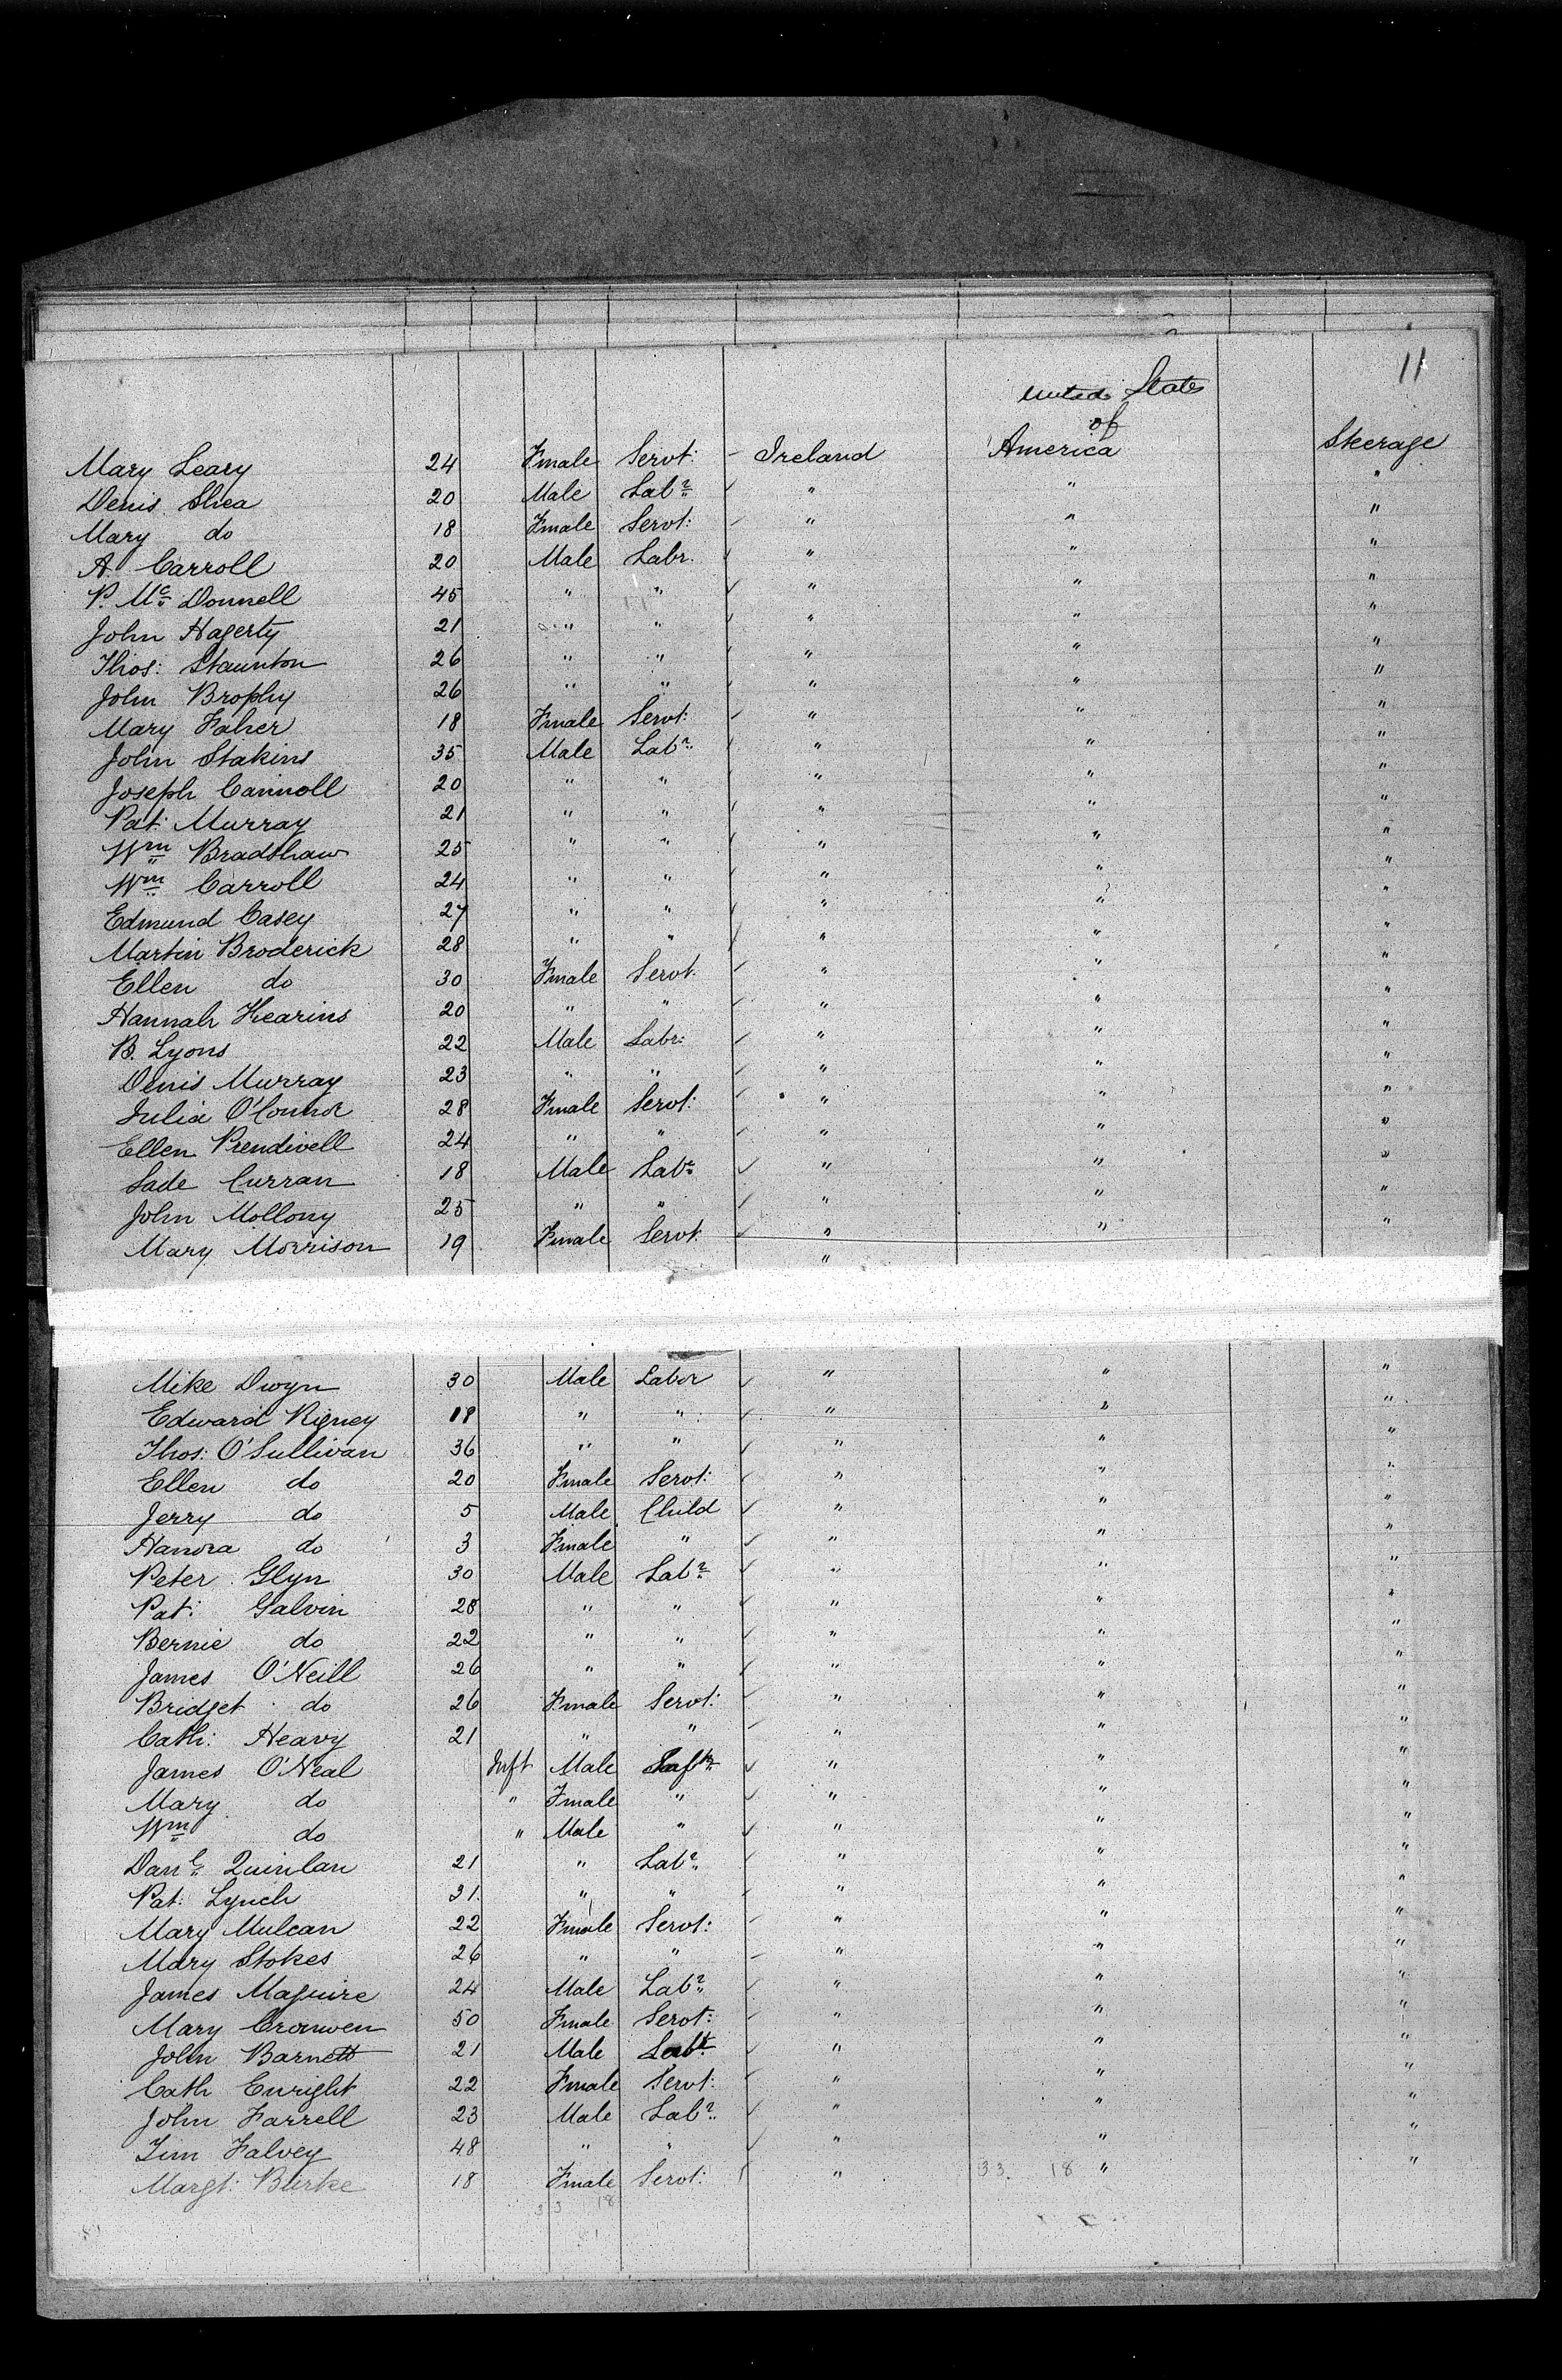 11
United States
of
Mary Leary 24 Female Servt: - Ireland America Steerage
Denis Shea 20 Male Labr " " "
Mary do 18 Female Servt: " " "
A. Carroll 20 Male Labr. " " "
P. Mc Donnell 45 " " " " "
John Hagerty 21 " " " " "
Thos: Staunton 26 " " " " "
John Brophy 26 " " " " "
Mary Faher 18 Female Servt: " " "
John Stakins 35 Male Labr " " "
Joseph Cannoll 20 " " " " "
Pat: Murray 21 " " " " "
Wm Bradshaw 25 " " " " "
Wm Carroll 24 " " " " "
Edmund Casey 27 " " " " "
Martin Broderick 28 " " " " "
Ellen do 30 Female Servt. " " "
Hannah Kearins 20 " " " " "
B. Lyons 22 Male Labr: " " "
Denis Murray 23 " " " " "
Julia O'Connor 28 Female Servt: " " "
Ellen Prendivell 24 " " " " "
Sade Curran 18 Male Labr " " "
John Mollony 25 " " " " "
Mary Morrison 19 Female Servt. " " "
"
Mike Dwyn 30 Male Labor " " "
Edward Rigney 18 " " " " "
Thos: O'Sullivan 36 " " " " "
Ellen do 20 Female Servt: " " "
Jerry do 5 Male Child " " "
Hanora do 3 Female " " " "
Peter Glyn 30 Male Labr " " "
Pat: Galvin 28 " " " " "
Bernie do 22 " " " " "
James O'Neill 26 " " " " "
Bridget do 26 Female Servt: " " "
Cath: Heavy 21 " " " " "
James O'Neal Inft Male " " "
Mary do " Female " " " "
Wm do " Male " " " "
Danl Quinlan 21 " Labr " " "
Pat: Lynch 31. " " " " "
Mary Mulcan 22 Female Servt: " " "
Mary Stokes 26 " " " " "
James Maguire 24 Male Labr " " "
Mary Cronwen 50 Female Servt: " " "
John Barnett 21 Male " " "
Cath Enright 22 Female Servt: " " "
John Farrell 23 Male Labr " " "
Tim Falvey 48 " " " " "
Margt: Burke 18 Female Servt: " 33. 18 " "
33 18